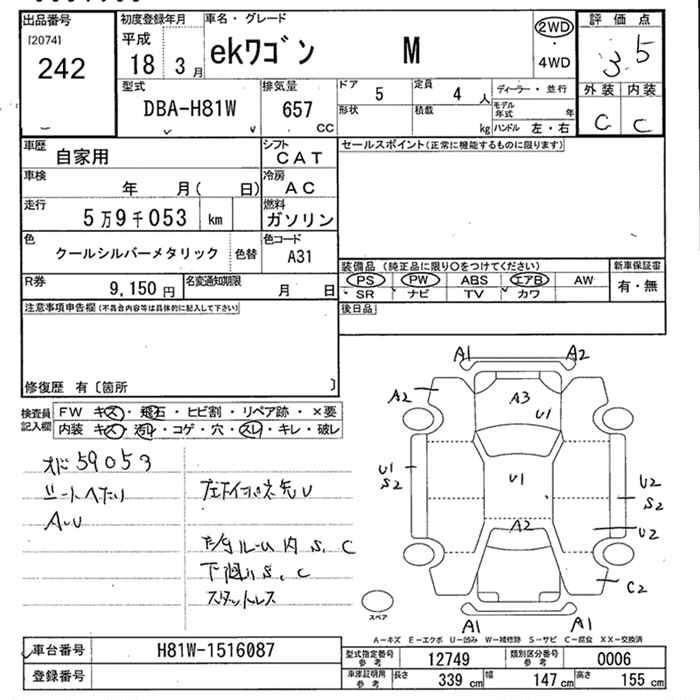 出品番号
[2074]
242
初度登録年月
平成
18 3 月
車名・グレード
ekワゴン M
2WD
・
4WD
評価点
3.5
外装 内装
C C
型式
DBA-H81W
排気量
657
CC
ドア
5
定員
4 人
形状
積載
kg
ディーラー・並行
モデル年式 年
ハンドル 左・右
車歴
自家用
シフト
CAT
車検
年 月( 日)
冷房
AC
走行
5万9千053 km
燃料
ガソリン
色
クールシルバーメタリック
色替
色コード
A31
R券
9,150 円
名変通知期限
月 日
セールスポイント(正常に機能するものに限ります)
装備品 (純正品に限り○をつけてください)
PS PW ABS エアB AW
SR ナビ TV カワ
新車保証書
有・無
後日品
注意事項申告欄(不具合内容等は具体的に記入して下さい)
修復歴 有〔箇所 〕
検査員記入欄
FW キズ・飛石・ヒビ割・リペア跡・×要
内装 キズ・汚れ・コゲ・穴・スレ・キレ・破レ
オド59053
シートヘタリ
A・U
左Fインパネ先U
下回りS、C
スタットレス
A1
A2
A2
A3
U1
U1
S2
U1
U2
S2
A2
U2
C2
A1
A1
スペア
A－キズ E－エクボ U－凹み W－補修跡 S－サビ C－腐食 XX－交換済
車台番号
H81W-1516087
登録番号
型式指定番号
参考
12749
類別区分番号
参考
0006
車庫証明用
参考
長さ
339 cm
幅
147 cm
高さ
155 cm